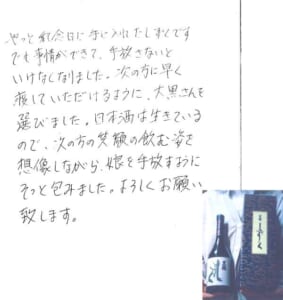 やっと記念日に手に入れたしずくです
でも事情ができて、手放さないと
いけなくなりました。次の方に早く
渡していただけるように、大黒さんを
選びました。日本酒は生きている
ので、次の方の笑顔の飲む姿を
想像しながら、娘を手放すように
そっと包みました。よろしくお願い
致します。